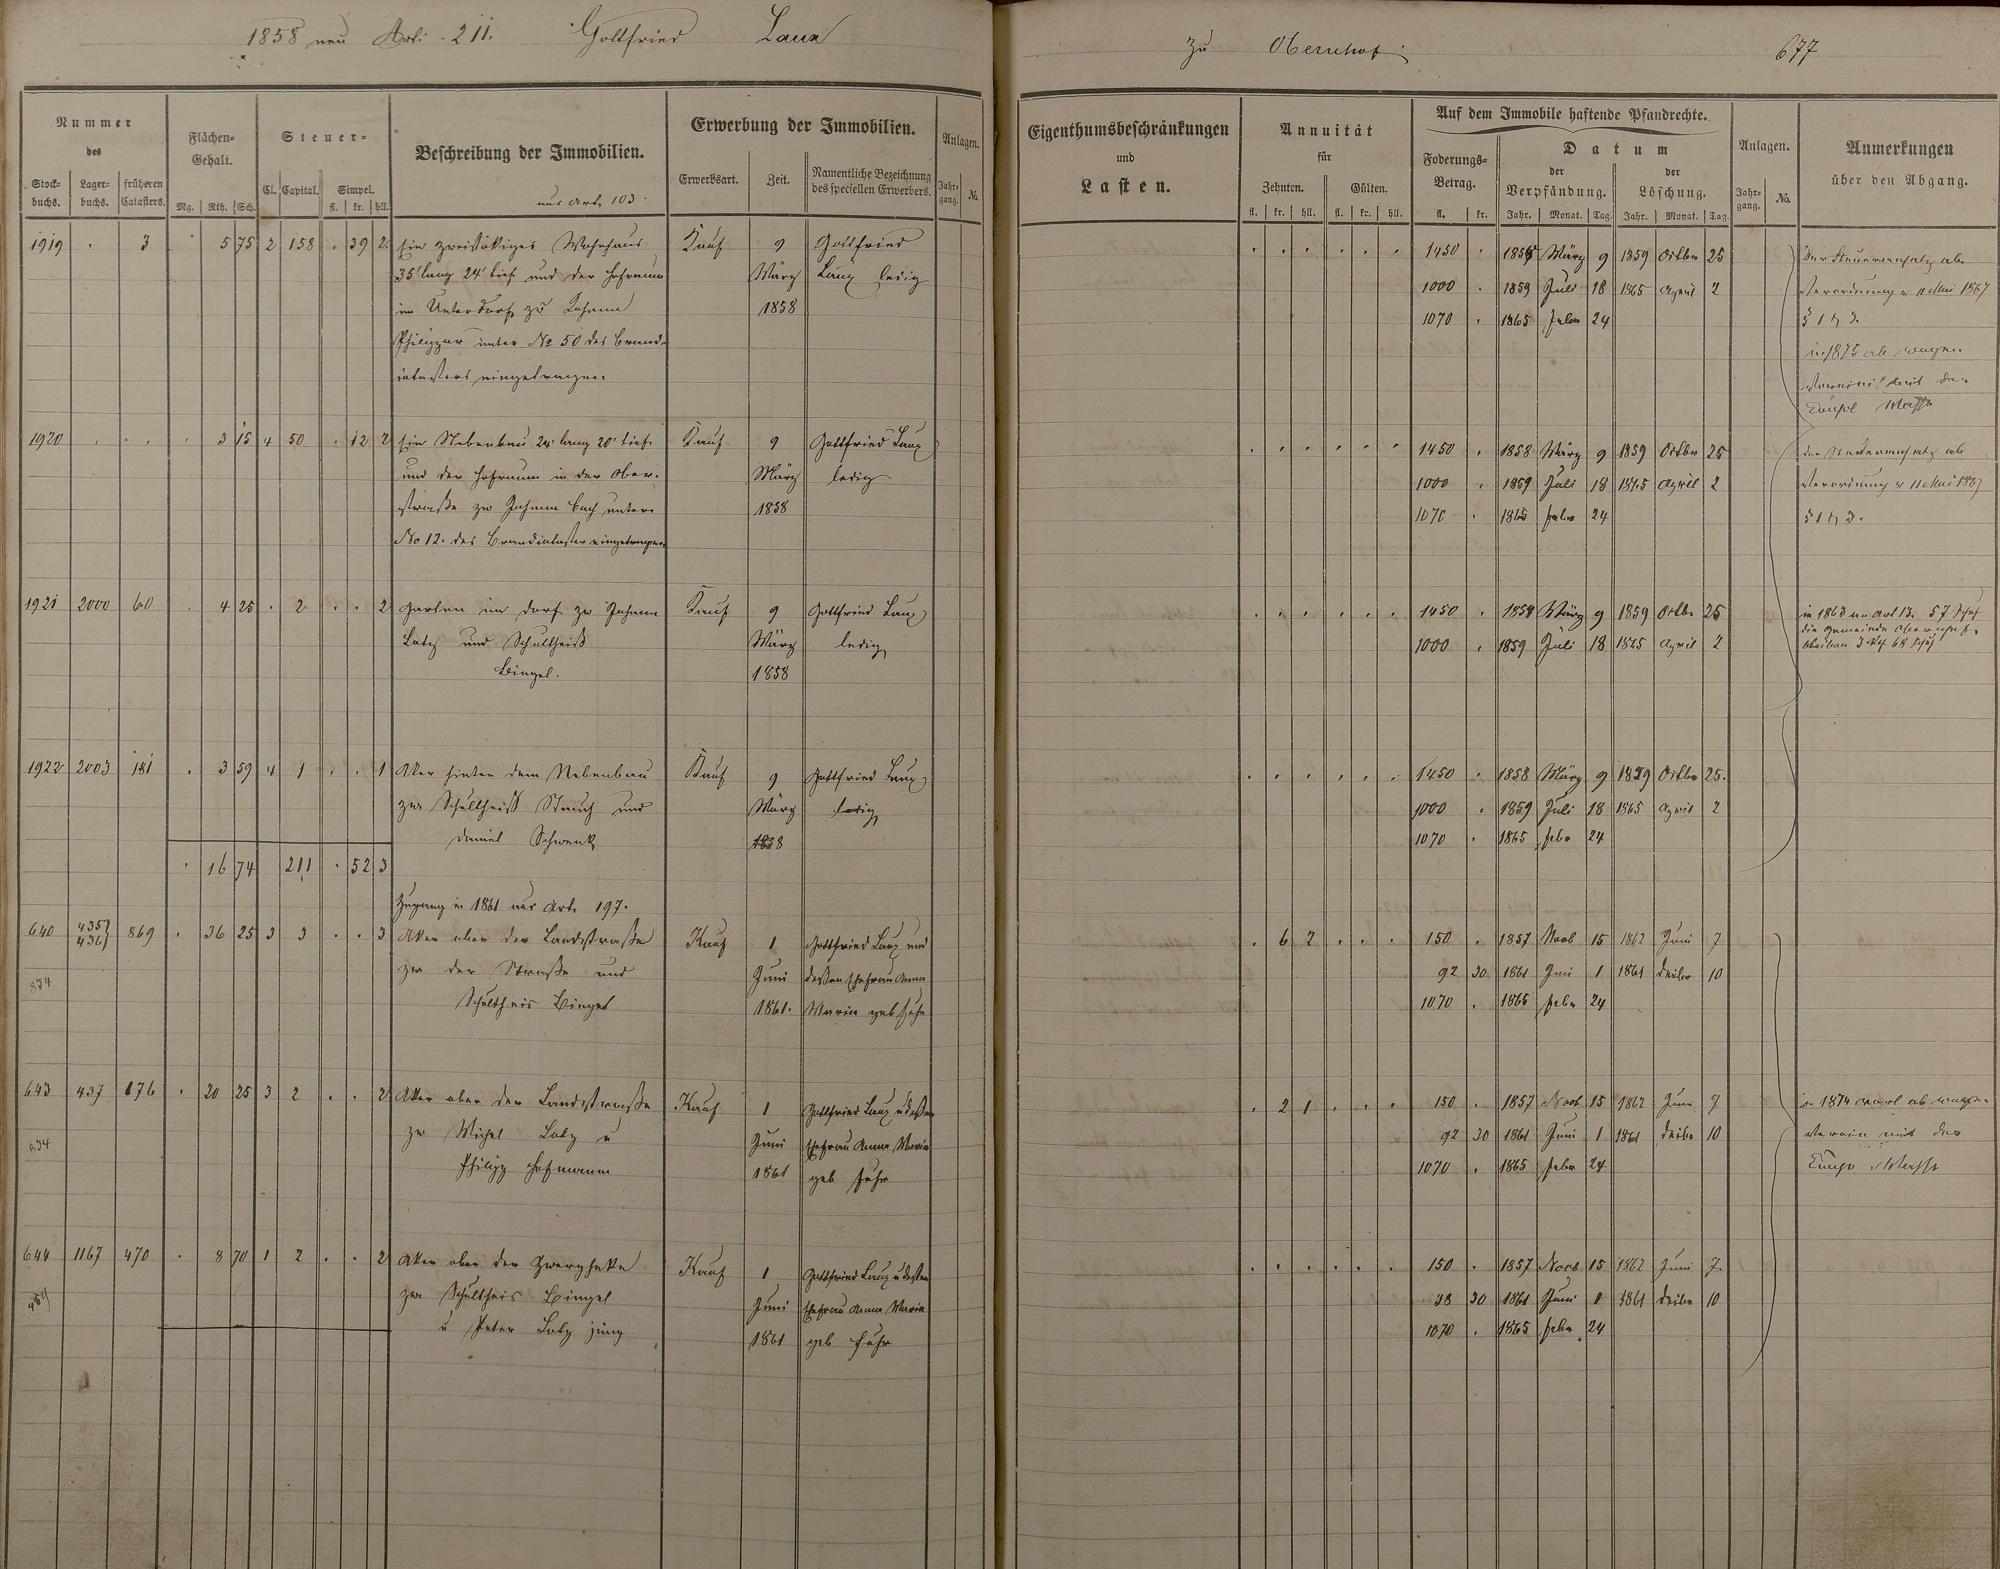 1858 neu Arti. 211. Gottfried Laux
zu Obernhof. 677
Nummer des
Stockbuchs. Lagerbuchs. früheren Catasters.
Flächen-Gehalt.
Mg. Rth. Sch.
Steuer-
Cl. Capital. Simpel. fl. kr. hll.
Beschreibung der Immobilien.
aus Art. 103.
Erwerbung der Immobilien.
Erwerbsart. Zeit. Namentliche Bezeichnung des speciellen Erwerbers.
Anlagen. Jahrgang. No.
Eigenthumsbeschränkungen und Lasten.
Annuität für
Zehnten. Gülten.
fl. kr. hll. fl. kr. hll.
Auf dem Immobile haftende Pfandrechte.
Foderungs-Betrag. fl. kr.
Datum
der Verpfändung. Jahr. Monat. Tag.
der Löschung. Jahr. Monat. Tag.
Anlagen. Jahrgang. No.
Anmerkungen über den Abgang.
1919 . 3 . 5 75 2 158 . 39 2 Ein zweistökiges Wohnhaus Kauf 9 Gottfried
35' lang 24' tief und der Hofraum März Laux ledig
im Unterdorf zu Johann 1858
unter No 50 des Brand-
eingetragen
1450 . März 9 1859 Octbr 25
1000 . 1859 Juli 18 1865 April 2
1070 . 1865 Febr 24
Verordnung v 11 Mai 1867
§ 1 & 3.
in 1875 ab wegen
1920 . . . . 3 15 4 50 . 12 2 Ein Nebenbau 24' lang 20' tief Kauf 9 Gottfried Laux
und der Hofraum in der Ober- März ledig
straße zw Johann Bach unter 1858
No 12. des Brandcataster eingetragen
1450 . 1858 März 9 1859 Octbr 25
1000 . 1859 Juli 18 1865 April 2
1070 . 1865 Febr 24
Verordnung v 11 Mai 1867
§ 1 & 3.
1921 2000 60 . 4 25 . 2 . . 2 Garten im Dorf zw Johann Kauf 9 Gottfried Laux
Lotz und Schultheiß März ledig
Bingel. 1858
1450 . 1858 März 9 1859 Octbr 25
1000 . 1859 Juli 18 1865 April 2
in 1863 an Art 13. 57 Schh
die Gemeinde Obernhof.
1922 2003 181 . 3 59 4 1 . . 1 Aker hinter dem Nebenbau Kauf 9 Gottfried Laux
zw Schultheiß Stauch und März ledig
Daniel Schwenk 1858
1450 . 1858 März 9 1859 Octbr 25.
1000 . 1859 Juli 18 1865 April 2
1070 . 1865 Febr 24
. 16 74 211 . 52 3
Zugang in 1861 aus Art. 197.
640 435 436 869 . 36 25 3 3 . . 3 Aker ober der Landstraße Kauf 1 Gottfried Laux und
zw der Straße und Juni dessen Ehefrau Anna
Schultheis Bingel 1861. Maria geb Fuhr
834
. 6 2 . . . 150 . 1857 Novb 15 1862 Juni 7
92 30 1861 Juni 1 1861 Decbr 10
1070 . 1865 Febr 24
643 437 876 . 20 25 3 2 . . 2 Aker ober der Landstraße Kauf 1 Gottfried Laux u dessen
zw Michel Lotz u Juni Ehefrau Anna Maria
Philipp Hofmann 1861 geb Fuhr
834
. 2 1 . . . 150 . 1857 Novb 15 1862 Juni 7
92 30 1861 Juni 1 1861 Decbr 10
1070 . 1865 Febr 24
644 1167 470 . 8 70 1 2 . . 2 Aker ober der Zwergheke Kauf 1 Gottfried Laux u dessen
zw Schultheis Bingel Juni Ehefrau Anna Maria
u Peter Lotz jung 1861 geb Fuhr
150 . 1857 Novb 15 1862 Juni 7
38 30 1861 Juni 1 1861 Decbr 10
1070 . 1865 Febr 24